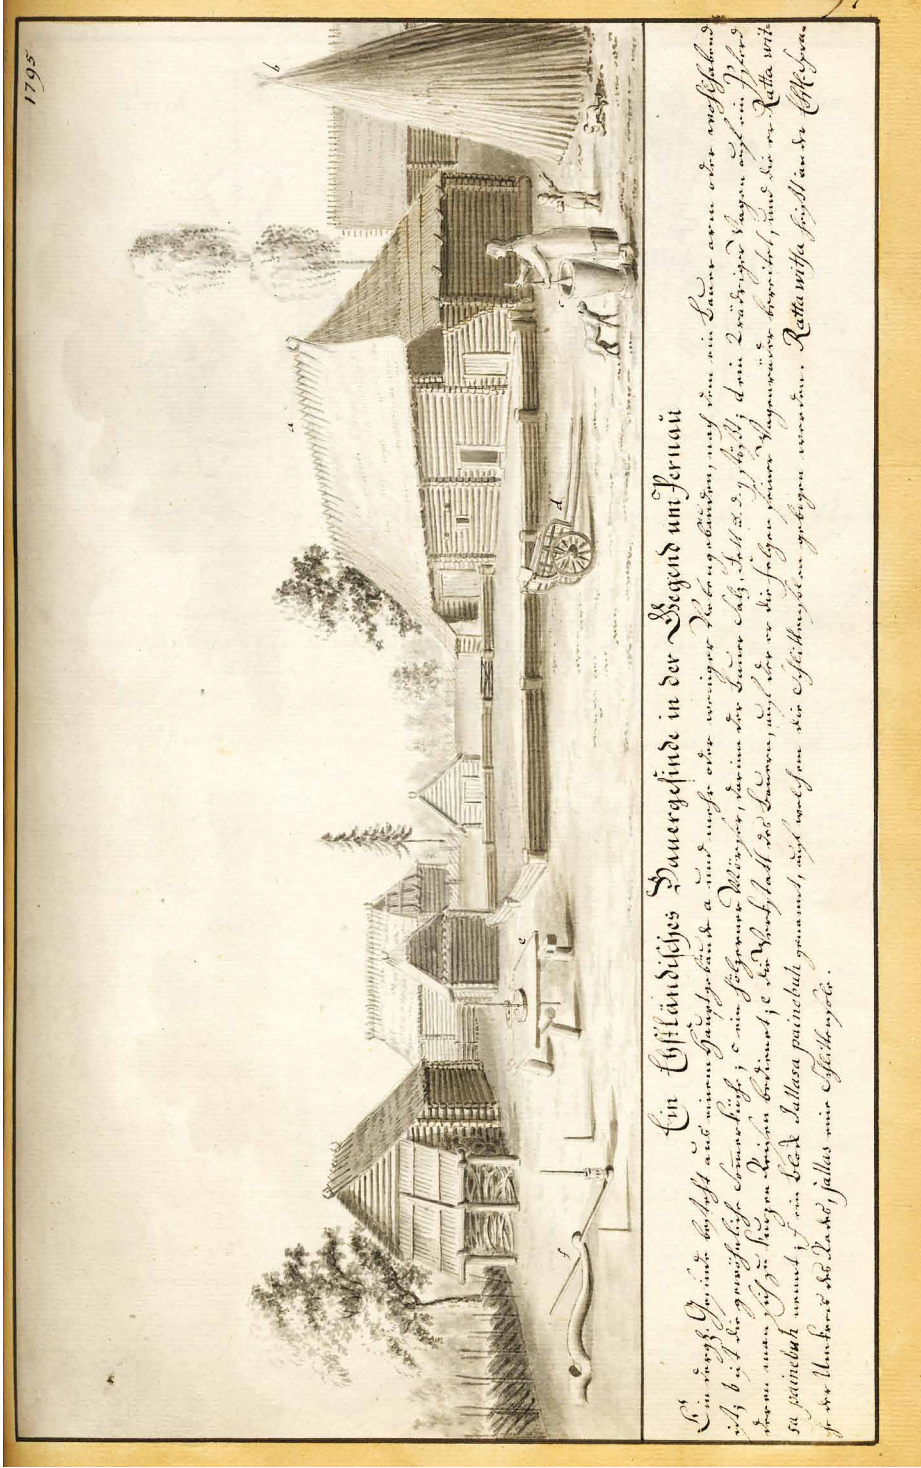 1795
b
a
d
c
e
f
Ein Ehstländisches Bauergesinde in der Gegend um Pernau
Ein dergl. Gesinde besteht aus einem Hauptgebäude a und mehr oder weniger Nebengebäuden, nach dem ein Bauer arm oder wohlhabend
ist; b ist die gewöhnliche Somerküche; c ein hölzerner Mörser, darinn der Bauer Salz, stößt; d ein 2rädriger Wagen auf ein Pferd
deren man sich zu kurzen Reisen bedienet; e die Werkstatt des Bauern, auf der er die Felgen seiner Wagenräder bereitet, und die er Ratta wit-
sa painebuh nennt; f ein Block Jallasa painebuh genannt, auf welchem die Schlittensohlen gebogen werden. Ratta witsa heißt in der Ehstespra-
che der Umkreis des Rades, jallas eine Schlittensohle.